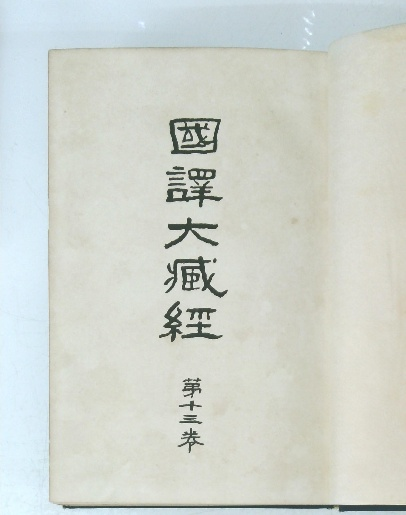 國譯大藏經
第十三卷